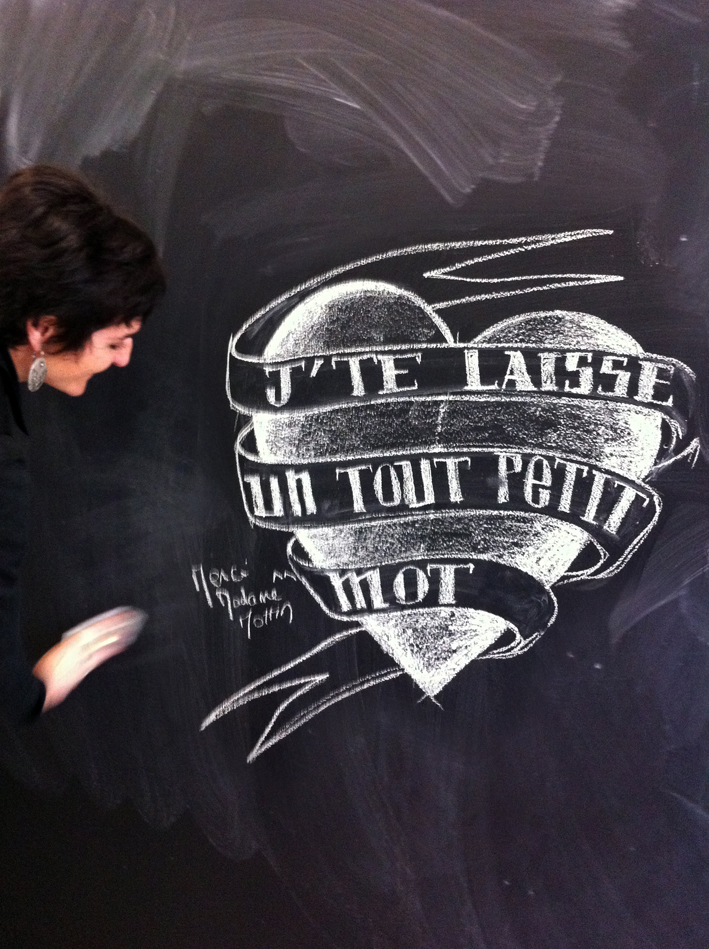 J'TE LAISSE
un TOUT PeTIT
mOT
Merci
Madame
Mottin